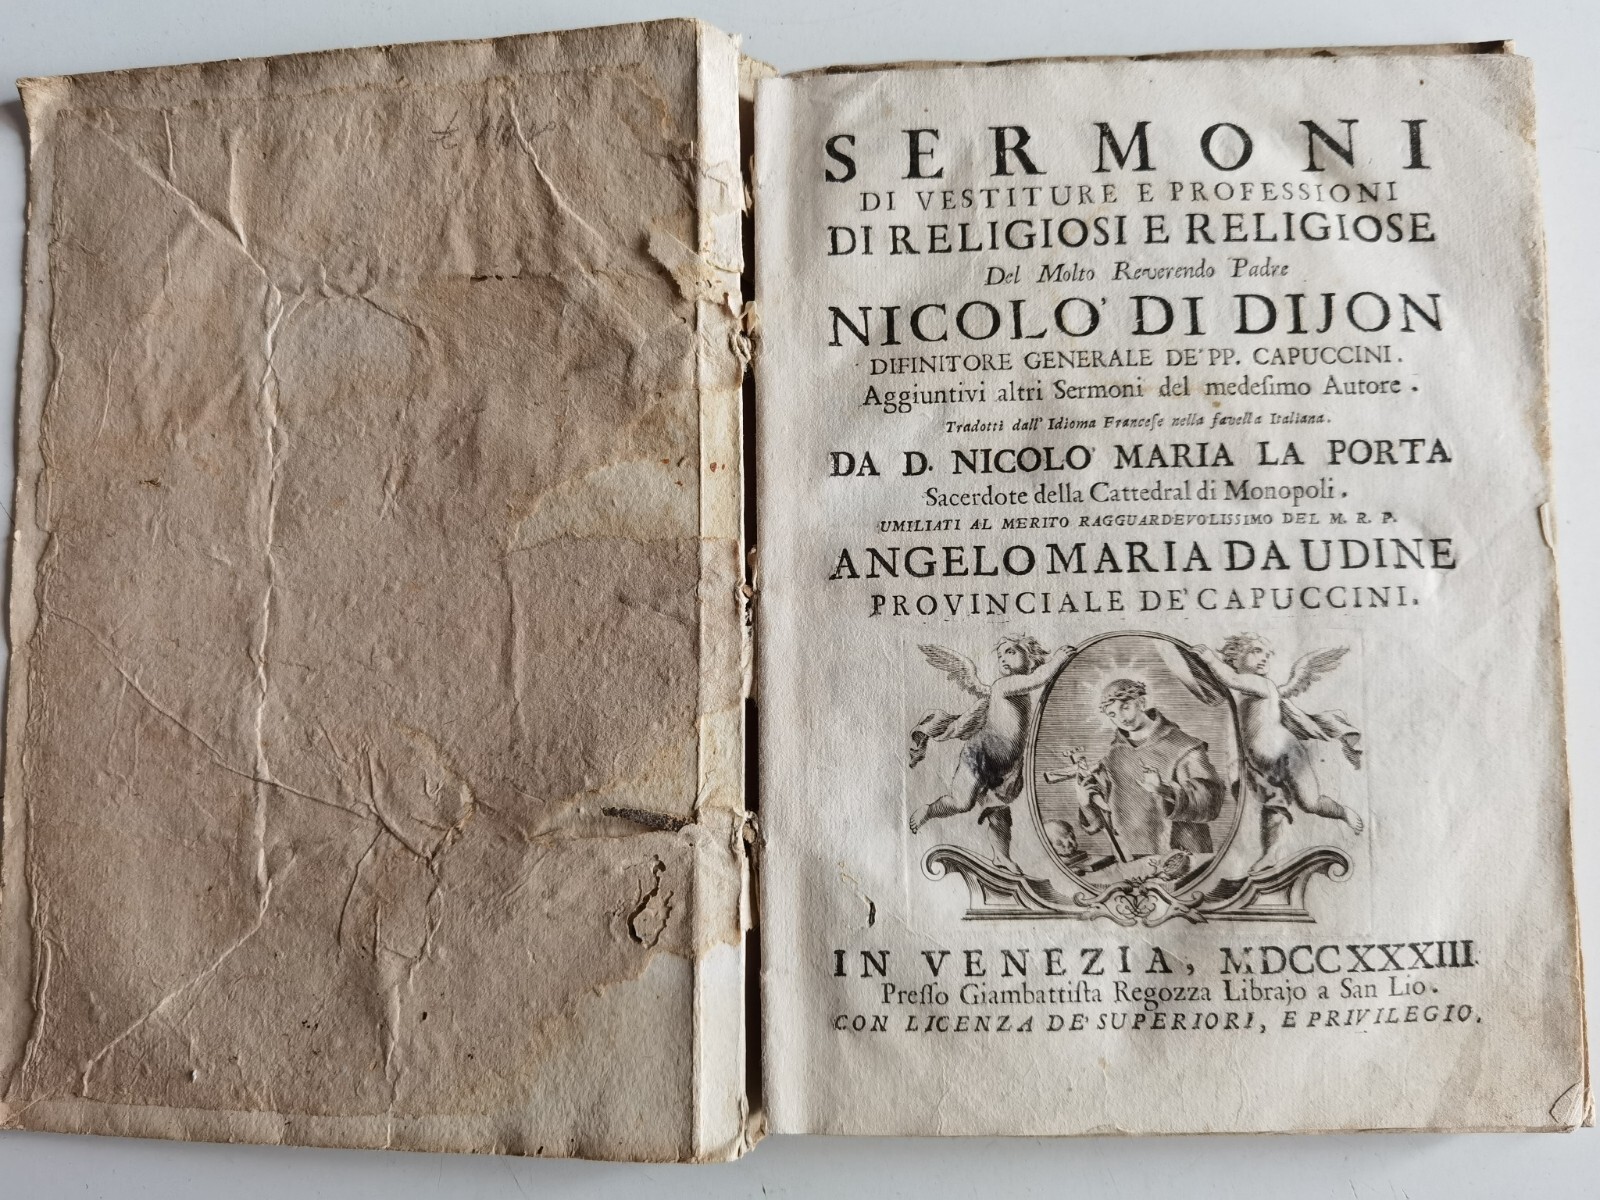 SERMONI
DI VESTITURE E PROFESSIONI
DI RELIGIOSI E RELIGIOSE
Del Molto Reverendo Padre
NICOLO' DI DIJON
DIFINITORE GENERALE DE' PP. CAPUCCINI.
Aggiuntivi altri Sermoni del medeſimo Autore.
Tradotti dall' Idioma Franceſe nella favella Italiana.
DA D. NICOLO' MARIA LA PORTA
Sacerdote della Cattedral di Monopoli.
UMILIATI AL MERITO RAGGUARDEVOLISSIMO DEL M. R. P.
ANGELO MARIA DA UDINE
PROVINCIALE DE' CAPUCCINI.
IN VENEZIA, MDCCXXXIII.
Preſſo Giambattiſta Regozza Librajo a San Lio.
CON LICENZA DE' SUPERIORI, E PRIVILEGIO.